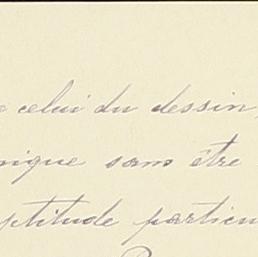 celui du dessin,
nique sans être
ptitude particu